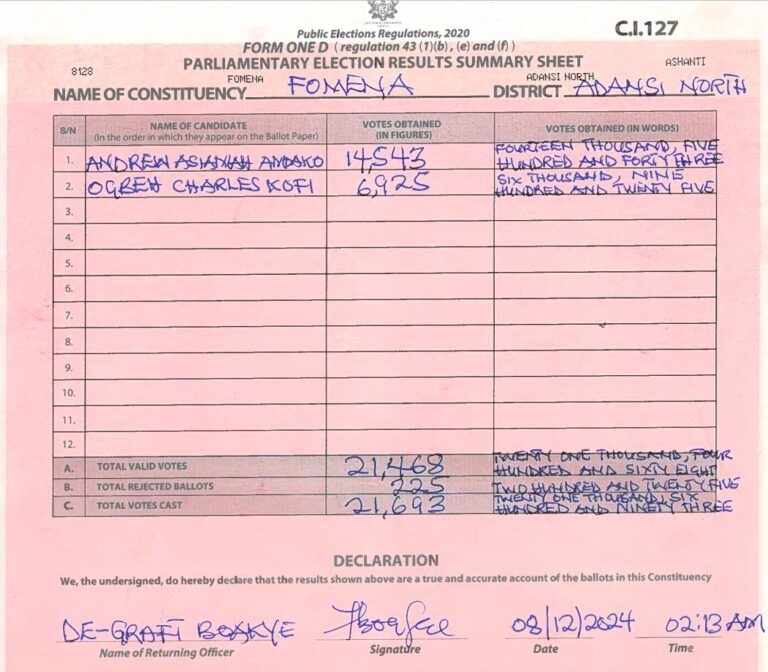 Public Elections Regulations, 2020
C.I.127
FORM ONE D ( regulation 43 (1)(b) , (e) and (f) )
PARLIAMENTARY ELECTION RESULTS SUMMARY SHEET
8128 FOMENA ADANSI NORTH ASHANTI
NAME OF CONSTITUENCY FOMENA DISTRICT ADANSI NORTH
S/N NAME OF CANDIDATE (In the order in which they appear on the Ballot Paper) VOTES OBTAINED (IN FIGURES) VOTES OBTAINED (IN WORDS)
1. ANDREW ASIAMAH AMOAKO 14,543 FOURTEEN THOUSAND, FIVE
HUNDRED AND FORTY THREE
2. OGBEH CHARLES KOFI 6,925 SIX THOUSAND, NINE
HUNDRED AND TWENTY FIVE
3.
4.
5.
6.
7.
8.
9.
10.
11.
12.
A. TOTAL VALID VOTES 21,468 TWENTY ONE THOUSAND, FOUR
HUNDRED AND SIXTY EIGHT
B. TOTAL REJECTED BALLOTS 225 TWO HUNDRED AND TWENTY FIVE
C. TOTAL VOTES CAST 21,693 TWENTY ONE THOUSAND, SIX
HUNDRED AND NINETY THREE
DECLARATION
We, the undersigned, do hereby declare that the results shown above are a true and accurate account of the ballots in this Constituency
DE-GRAFT 08/12/2024 02:13 AM
Name of Returning Officer Signature Date Time